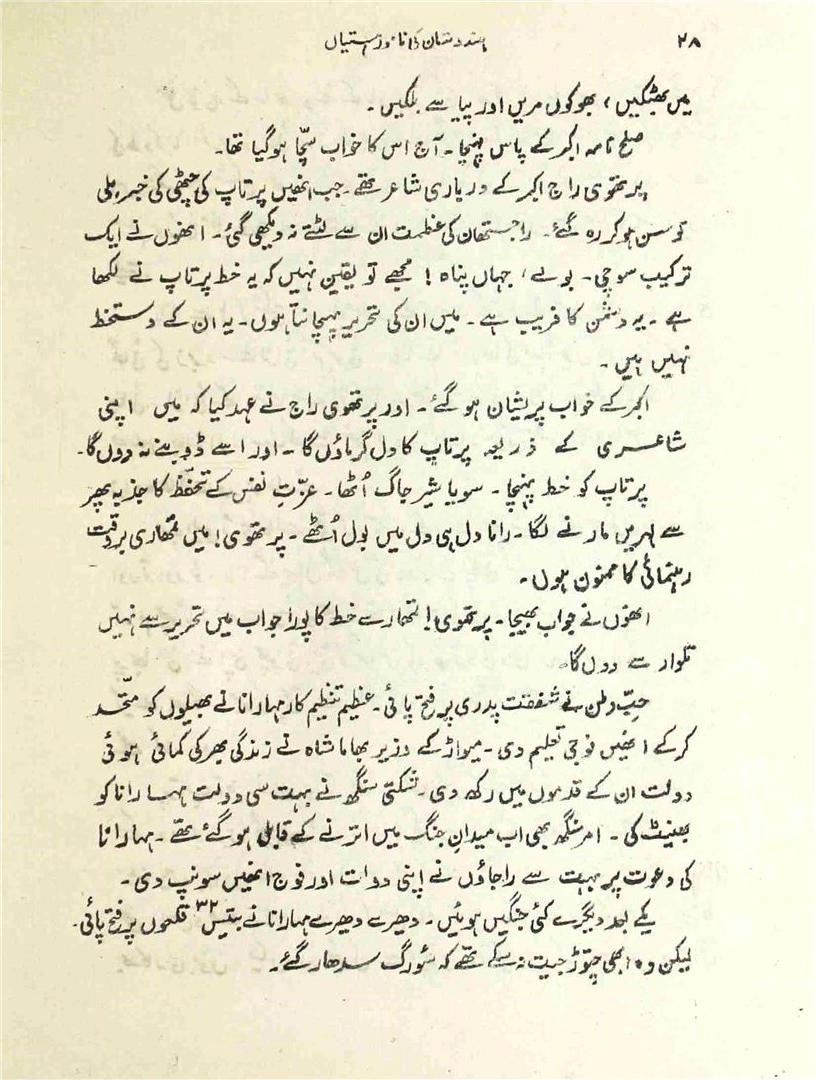 ۲۸ ہندوستان کی نامور ہستیاں
میں بھٹکیں، بھوکوں مریں اور پیاسے بلکیں۔
صلح نامہ اکبر کے پاس پہنچا۔ آج اس کا خواب سچّا ہوگیا تھا۔
پرتھوی راج اکبر کے درباری شاعر تھے۔ جب انھیں پرتاپ کی چٹھی کی خبر ملی
تو سن ہو کر رہ گئے۔ راجستھان کی عظمت ان سے لٹتے نہ دیکھی گئی۔ انھوں نے ایک
ترکیب سوچی۔ بولے، جہاں پناہ! مجھے تو یقین نہیں کہ یہ خط پرتاپ نے لکھا
ہے۔ یہ دشمن کا فریب ہے۔ میں ان کی تحریر پہچانتا ہوں۔ یہ ان کے دستخط
نہیں ہیں۔
اکبر کے خواب پریشان ہوگئے۔ اور پرتھوی راج نے عہد کیا کہ میں اپنی
شاعری کے ذریعہ پرتاپ کا دل گرماؤں گا۔ اور اسے ڈوبنے نہ دوں گا۔
پرتاپ کو خط پہنچا۔ سویا شیر جاگ اُٹھا۔ عزّتِ نفس کے تحفّظ کا جذبہ پھر
سے لہریں مارنے لگا۔ رانا دل ہی دل میں بول اُٹھے۔ پرتھوی! میں تمھاری بروقت
رہنمائی کا ممنون ہوں۔
انھوں نے جواب بھیجا۔ پرتھوی! تمھارے خط کا پورا جواب میں تحریر سے نہیں
تلوار سے دوں گا۔
حبِّ وطن نے شفقت پدری پر فتح پائی۔ عظیم تنظیم کار مہارانا نے بھیلوں کو متّحد
کرکے انھیں فوجی تعلیم دی۔ میواڑ کے وزیر بھاما شاہ نے زندگی بھر کی کمائی ہوئی
دولت ان کے قدموں میں رکھ دی۔ شکتی سنگھ نے بہت سی دولت مہارانا کو
بھینٹ کی۔ امر سنگھ بھی اب میدانِ جنگ میں اترنے کے قابل ہوگئے تھے۔ مہارانا
کی دعوت پر بہت سے راجاؤں نے اپنی دولت اور فوج انھیں سونپ دی۔
یکے بعد دیگرے کئی جنگیں ہوئیں۔ دھیرے دھیرے مہارانا نے بتیس ۳۲ قلعوں پر فتح پائی۔
لیکن وہ ابھی چتوڑ جیت نہ سکے تھے کہ سُورگ سدھار گئے۔